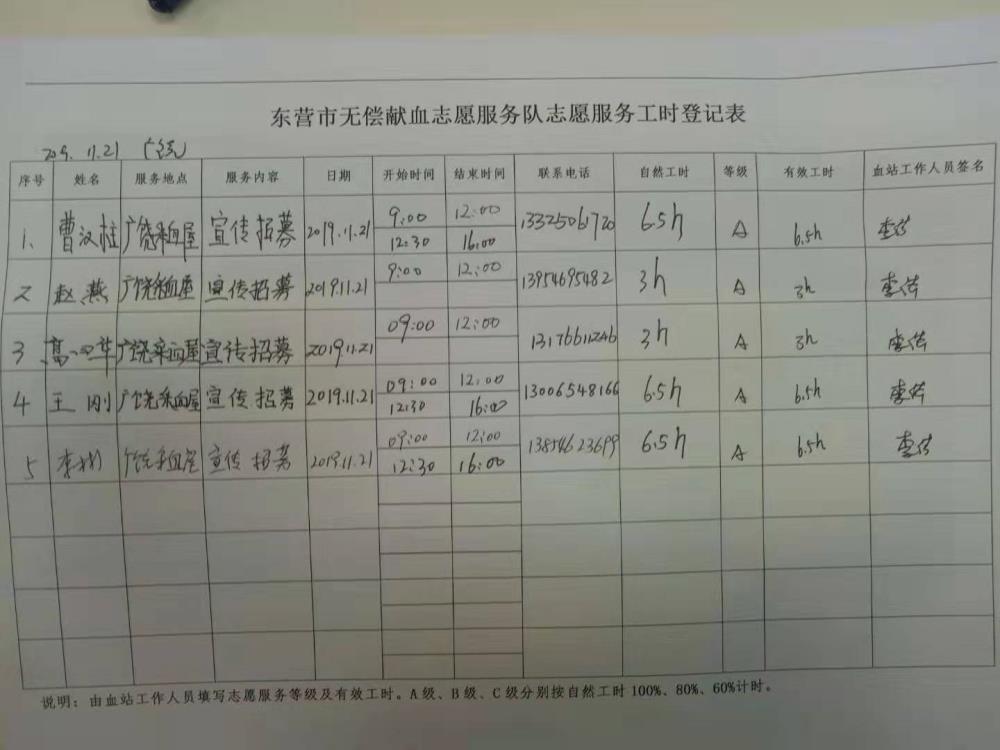 东营市无偿献血志愿服务队志愿服务工时登记表
2019.11.21 广饶
序号 姓名 服务地点 服务内容 日期 开始时间 结束时间 联系电话 自然工时 等级 有效工时 血站工作人员签名
1、 曹汉柱 广饶采血屋 宣传招募 2019.11.21 9:00 12:00 13325061720 6.5h A 6.5h
12:30 16:00
2 赵燕 广饶采血屋 宣传招募 2019.11.21 9:00 12:00 13954695482 3h A 3h
3 广饶采血屋 宣传招募 2019.11.21 09:00 12:00 13176611246 3h A 3h
4 王刚 广饶采血屋 宣传招募 2019.11.21 09:00 12:00 13006548166 6.5h A 6.5h
12:30 16:00
5 广饶采血屋 宣传招募 2019.11.21 09:00 12:00 13854623699 6.5h A 6.5h
12:30 16:00
说明：由血站工作人员填写志愿服务等级及有效工时。A级、B级、C级分别按自然工时100%、80%、60%计时。